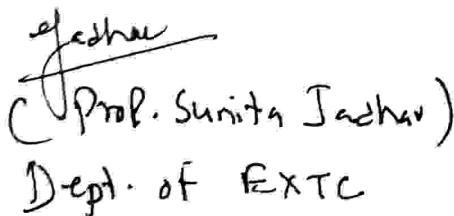 Jadhav
(Prof. Sunita Jadhav)
Dept. of EXTC